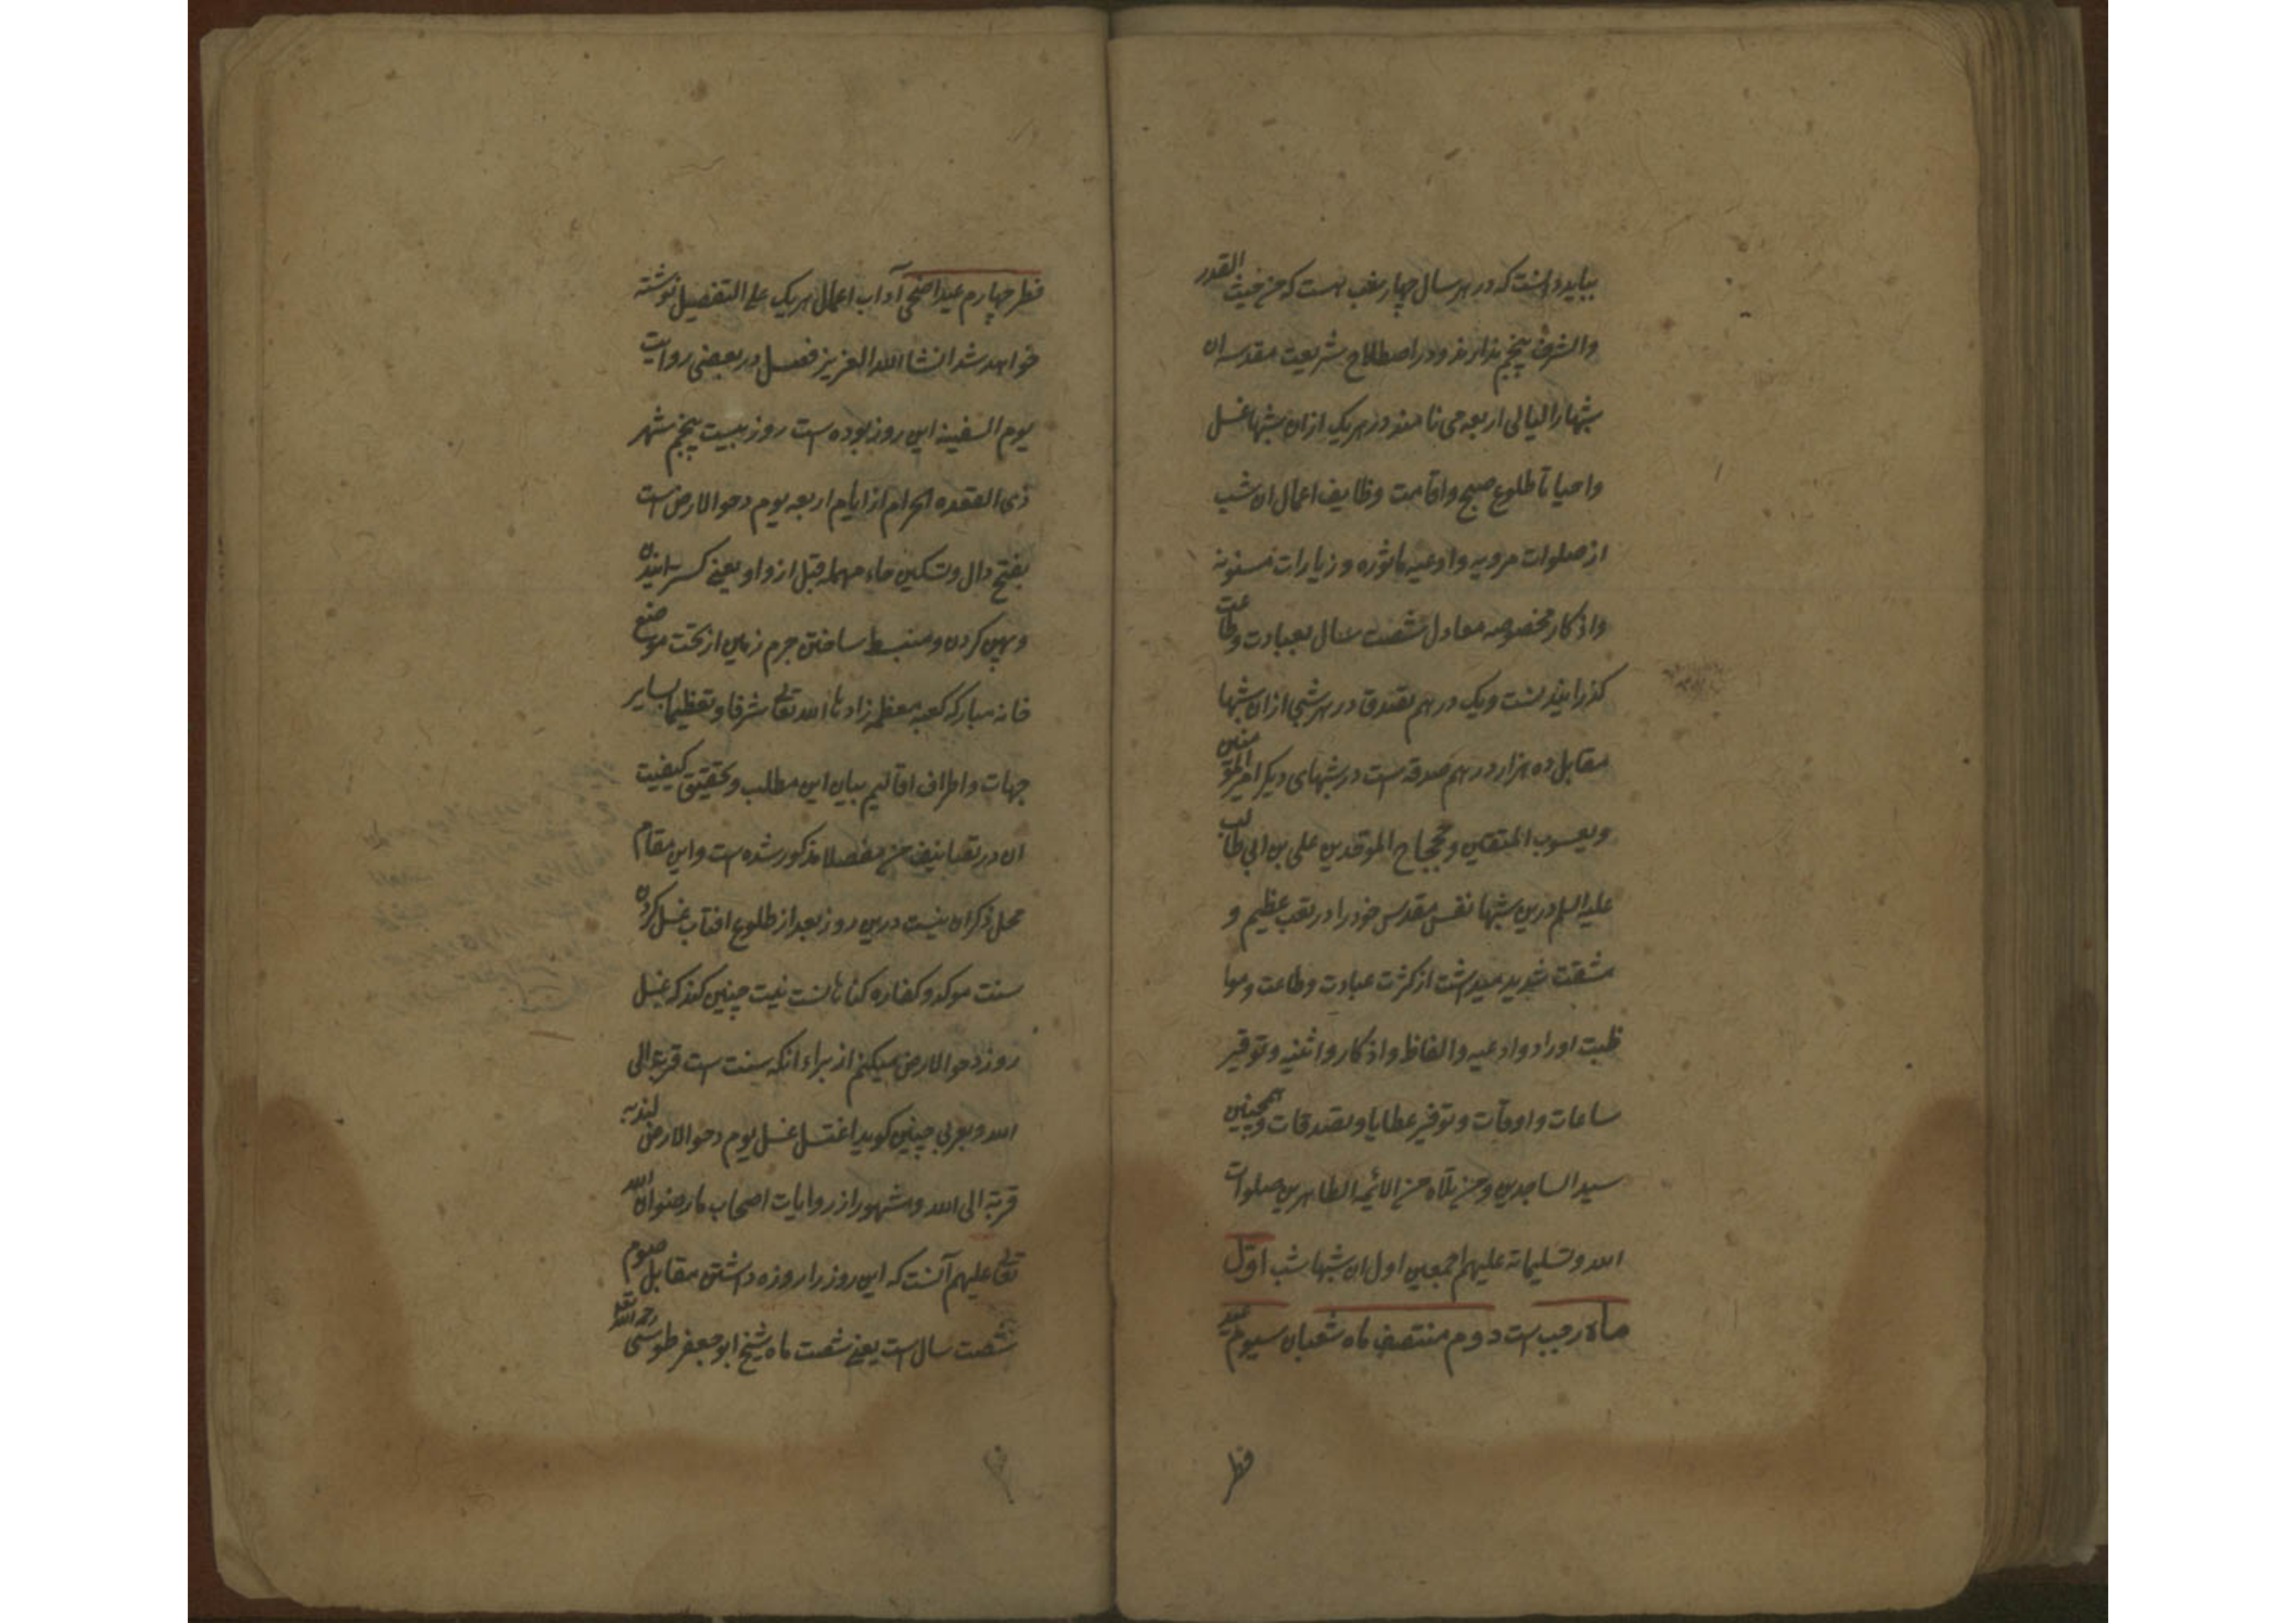 بباید دانست که در هر سال چهار شب هست که من حیث القدر
والشرف پنجم ندارند و در اصطلاح شریعت مقدسه ان
شبها را لیالی اربعه می نامند در هر یک ازان شبها غسل
واحیا تا طلوع صبح واقامت وظایف اعمال ان شب
از صلوات مرویه وادعیه ماثوره و زیارات مسنونه
واذکار مخصوصه معادل شصت سال بعبادت وطاعت
کذرانیدنست ویک درهم تصدق در هر شبی ازان شبها
مقابل ده هزار درهم صدقه است در شبهای دیکر امیر المؤمنین
ویعسوب المتقین وحجاج الموقدین علی بن ابی طالب
علیه السلم درین شبها نفس مقدس خود را در تعب عظیم و
مشقت شدید میداشت از کثرت عبادت وطاعت وموا
ظبت اوراد وادعیه والفاظ واذکار واثنیه وتوقیر
ساعات واوقات وتوفیر عطایا وتصدقات وهمچنین
سید الساجدین ومن تلاه من الائمه الطاهرین صلوات
الله وتسلیماته علیهم اجمعین اول ان شبها شب اول
ماه رجب است دوم منتصف ماه شعبان سیوم عید
فطر
فطر چهارم عید اضحی آداب اعمال هر یک علی التفصیل نوشته
خواهد شد انشا الله العزیز فصل در بعضی روایت
یوم السفینه این روز بوده است روز بیست پنجم شهر
ذی القعده الحرام از ایام اربعه یوم دحو الارض است
بفتح دال وتسکین حاء مهمله قبل از واو یعنی کسترانیدن
وپهن کردن ومنبسط ساختن جرم زمین از تحت موضع
خانه مبارکه کعبه معظمه زادها الله تعالی شرفا وتعظیما بسایر
جهات واطراف اقالیم بیان این مطلب وتحقیق کیفیت
ان در تصانیف من مفصلا مذکور شده است واین مقام
محل ذکر ان نیست درین روز بعد از طلوع افتاب غسل کردن
سنت موکد و کفاره کناهانست نیت چنین کند که غسل
روز دحو الارض میکنم از براء انکه سنت است قربة الی
الله وبعربی چنین کوید اغتسل غسل یوم دحو الارض لندبه
قربة الی الله ومشهور از روایات اصحاب ما رضوان الله
تعالی علیهم آنست که این روز را روزه داشتن مقابل صوم
شصت سال است یعنی شصت ماه شیخ ابو جعفر طوسی رحمه الله